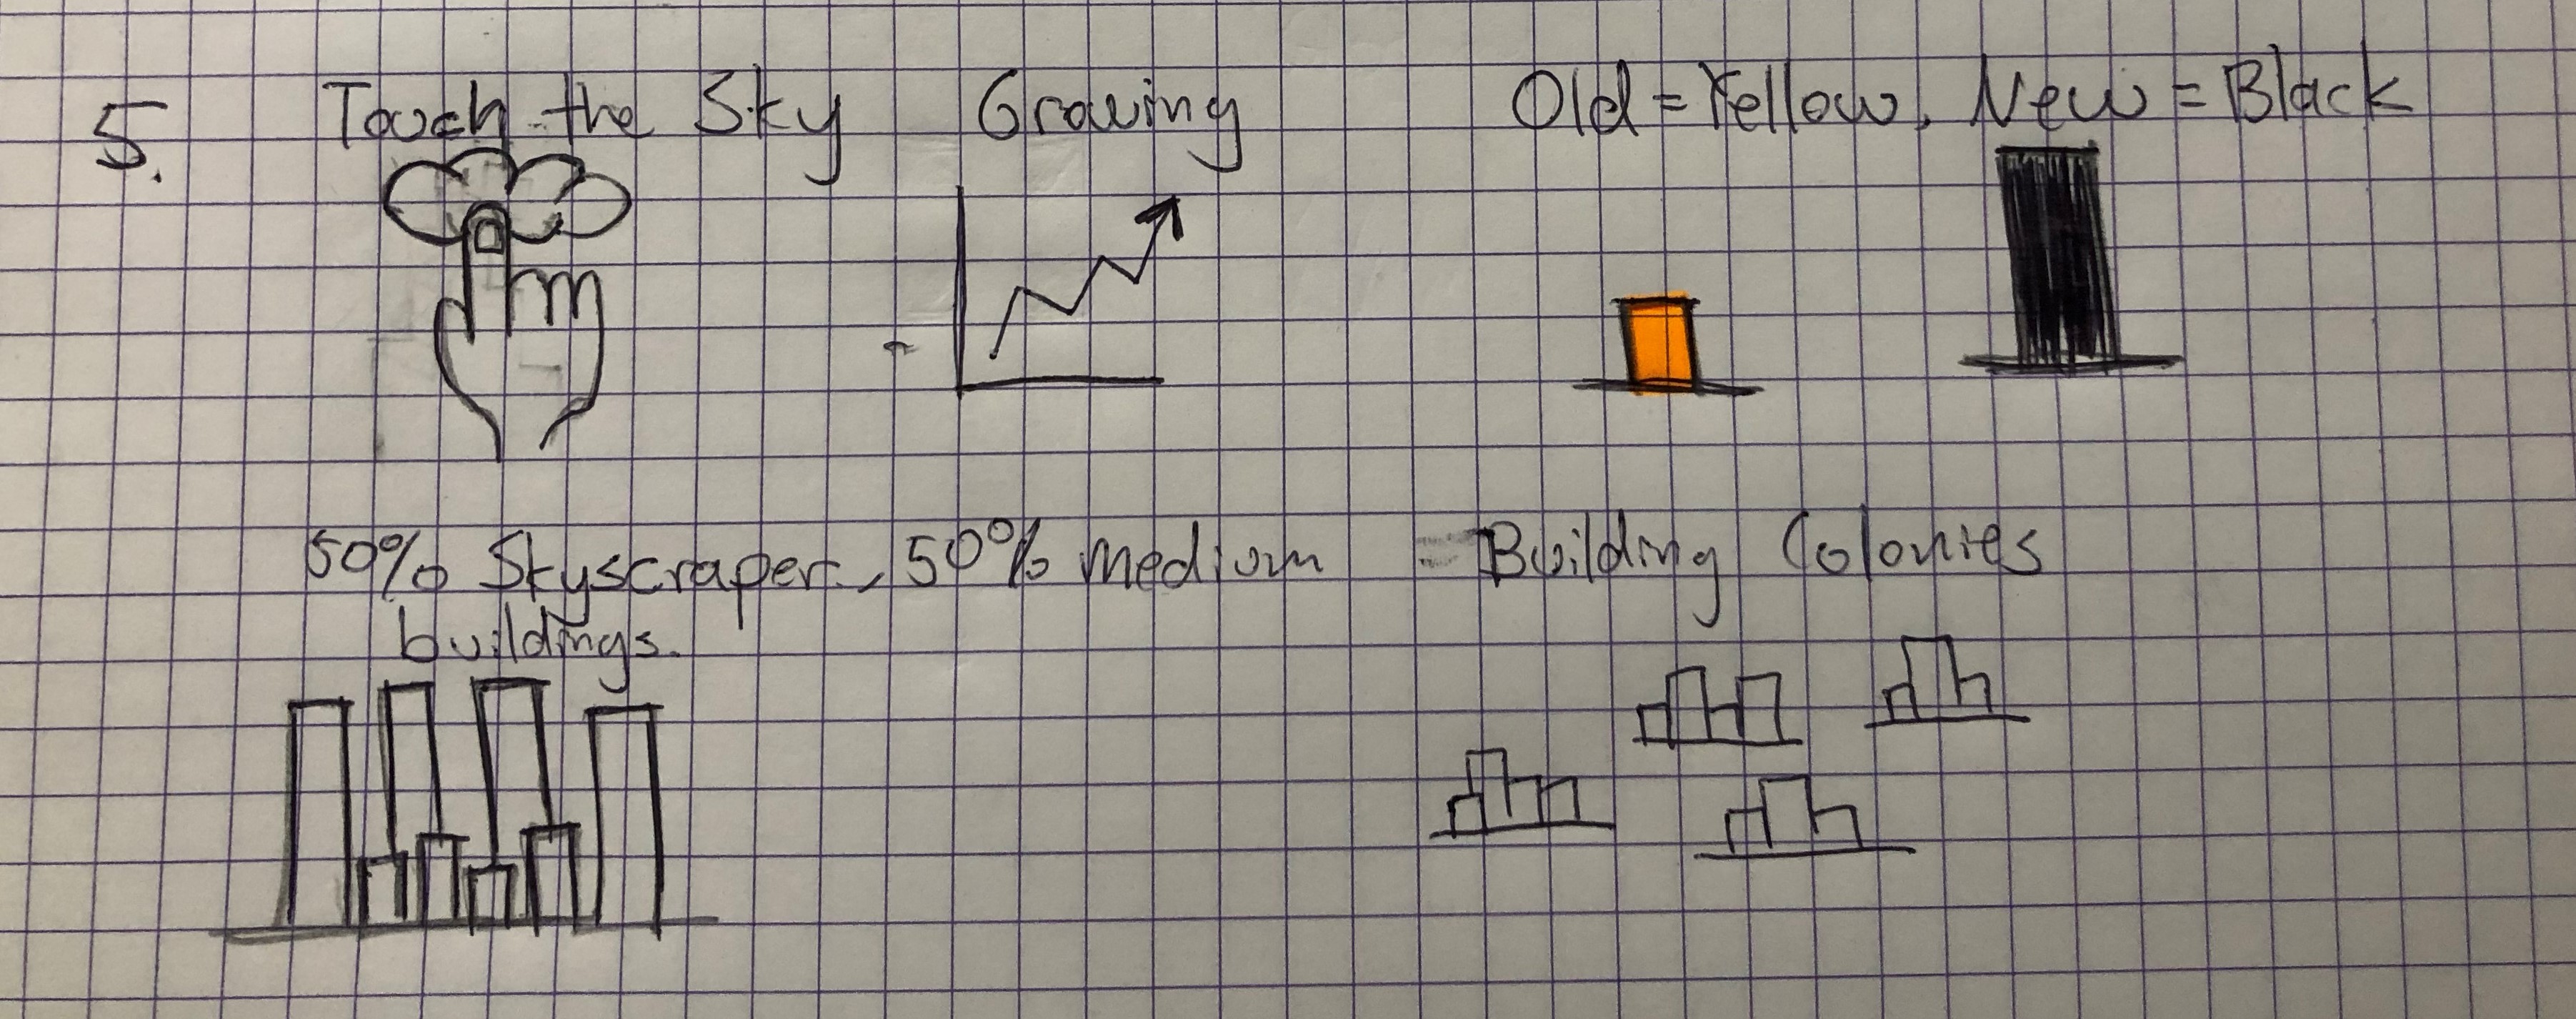 5. Touch the Sky Growing Old = Yellow, New = Black
50% Skyscraper, 50% medium = Building Colonies
buildings.